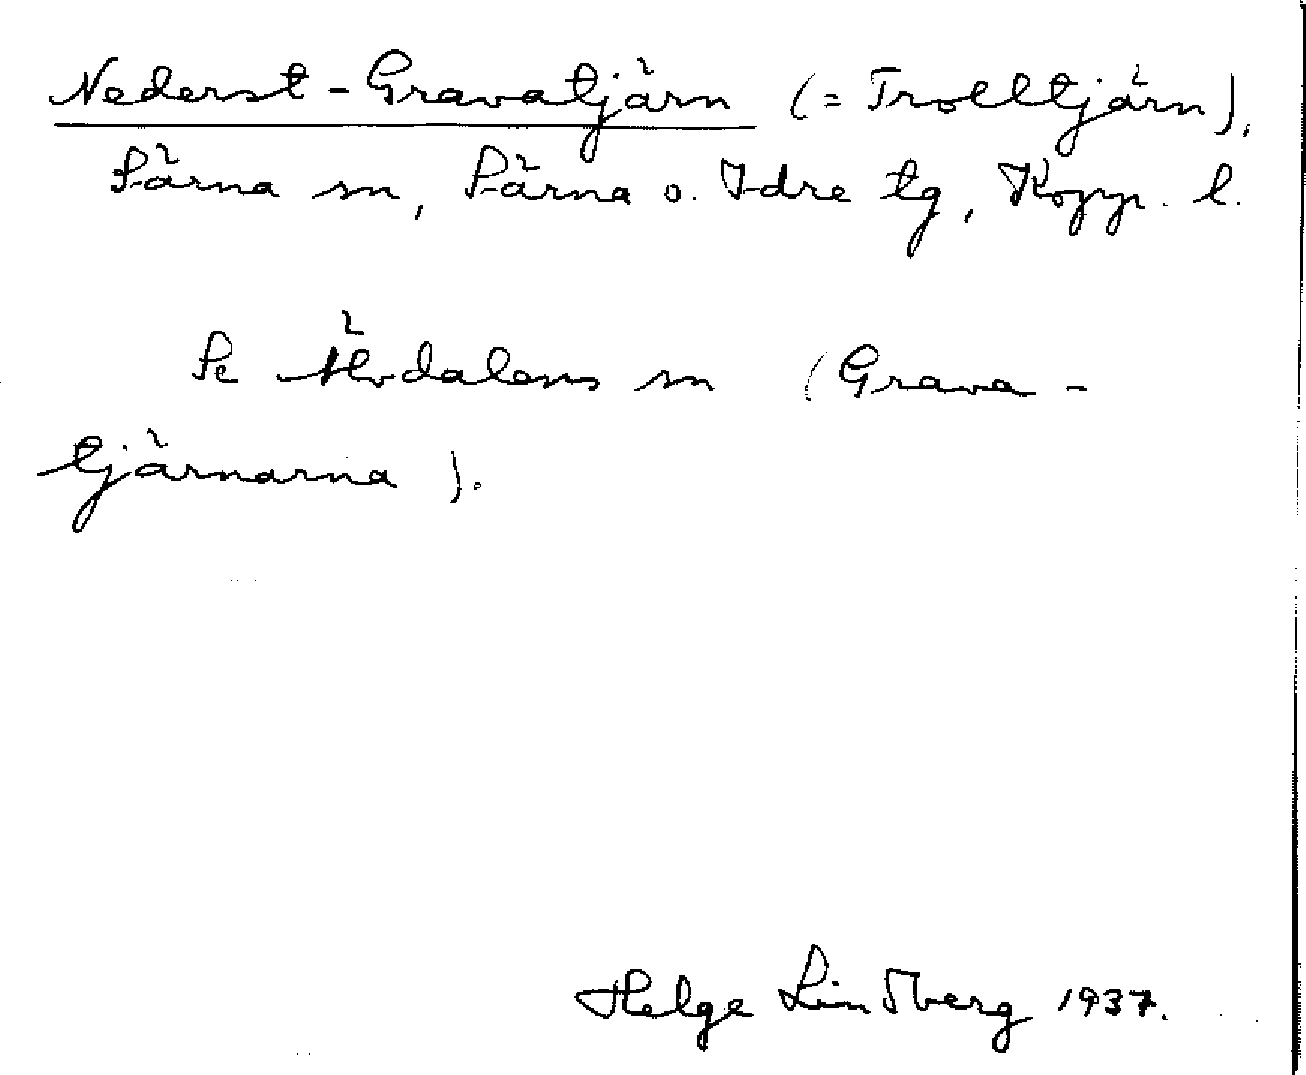 Nederst-Gravatjärn (= Trolltjärn),
Särna sn, Särna o. Idre tg, Kopp. l.
Se Älvdalens sn (Grava-
tjärnarna).
Helge Lindberg 1937.